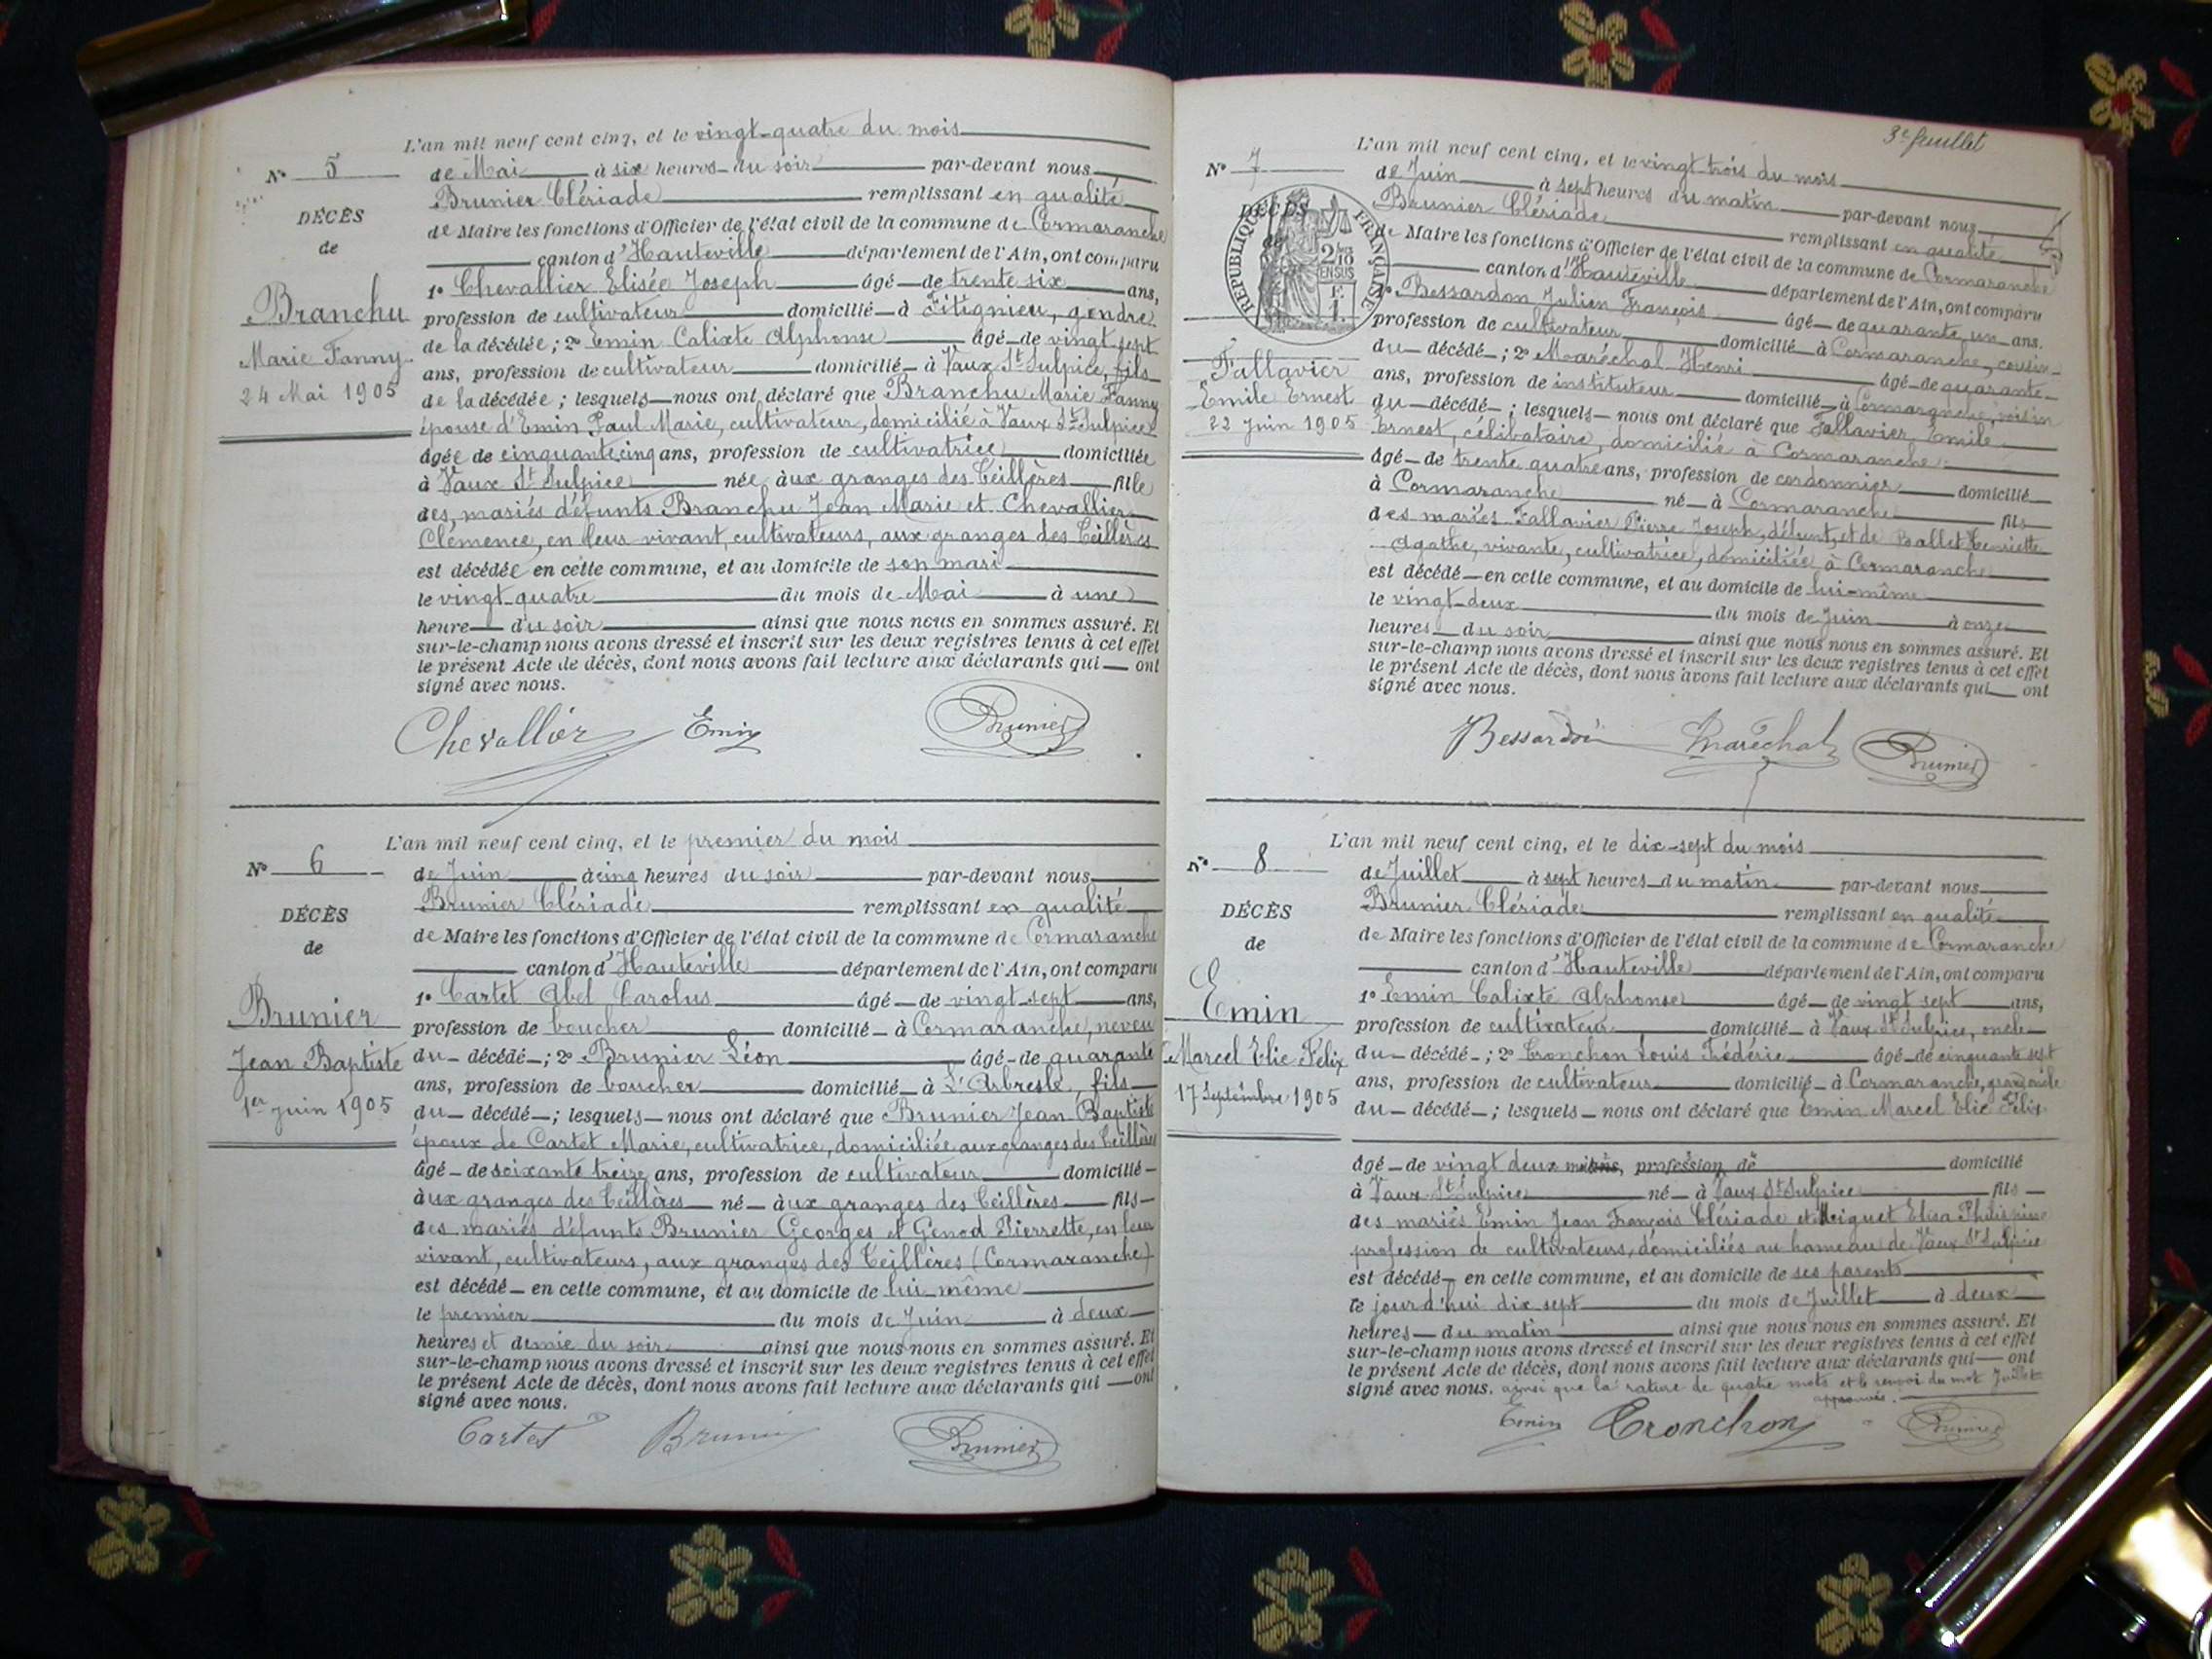 L'an mil neuf cent cinq, et le vingt-quatre du mois
N° 5
de Mai à six heures du soir par-devant nous
Brunier Clériade remplissant en qualité
DÉCÈS
de Maire les fonctions d'Officier de l'état civil de la commune de Cormaranche
de
canton d'Hauteville département de l'Ain, ont comparu
1° Chevallier Elisée Joseph âgé de trente six ans,
Branchu
profession de cultivateur domicilié à Fitignieu, gendre
Marie Fanny
de la décédée ; 2° Emin Calixte Alphonse âgé de vingt sept
24 Mai 1905
ans, profession de cultivateur domicilié à Vaux St Sulpice, fils
de la décédée ; lesquels nous ont déclaré que Branchu Marie Fanny
épouse d'Emin Paul Marie, cultivateur, domicilié à Vaux St Sulpice
âgée de cinquante cinq ans, profession de cultivatrice domiciliée
à Vaux St Sulpice née aux granges des Ceillères fille
des mariés défunts Branchu Jean Marie et Chevallier
Clémence, en leur vivant, cultivateurs, aux granges des Ceillères
est décédée en cette commune, et au domicile de son mari
le vingt-quatre du mois de Mai à une
heure du soir ainsi que nous nous en sommes assuré. Et
sur-le-champ nous avons dressé et inscrit sur les deux registres tenus à cet effet
le présent Acte de décès, dont nous avons fait lecture aux déclarants qui ont
signé avec nous.
Chevallier Emin Brunier
L'an mil neuf cent cinq, et le premier du mois
N° 6
de Juin à cinq heures du soir par-devant nous
Brunier Clériade remplissant en qualité
DÉCÈS
de Maire les fonctions d'Officier de l'état civil de la commune de Cormaranche
de
canton d'Hauteville département de l'Ain, ont comparu
1° Cartet Abel Carolus âgé de vingt sept ans,
Brunier
profession de boucher domicilié à Cormaranche, neveu
Jean Baptiste
du décédé ; 2° Brunier Léon âgé de quarante
ans, profession de boucher domicilié à L'Arbresle, fils
1er Juin 1905
du décédé ; lesquels nous ont déclaré que Brunier Jean Baptiste
époux de Cartet Marie, cultivatrice, domiciliée aux granges des Ceillères
âgé de soixante treize ans, profession de cultivateur domicilié
aux granges des Ceillères né aux granges des Ceillères fils
des mariés défunts Brunier Georges et Genod Pierrette, en leur
vivant, cultivateurs, aux granges des Ceillères (Cormaranche)
est décédé en cette commune, et au domicile de lui-même
le premier du mois de Juin à deux
heures et demie du soir ainsi que nous nous en sommes assuré. Et
sur-le-champ nous avons dressé et inscrit sur les deux registres tenus à cet effet
le présent Acte de décès, dont nous avons fait lecture aux déclarants qui ont
signé avec nous.
Cartet Brunier Brunier
3e feuillet
L'an mil neuf cent cinq, et le vingt-trois du mois
N° 7
de Juin à sept heures du matin par-devant nous
Brunier Clériade remplissant en qualité
DÉCÈS
de
RÉPUBLIQUE FRANÇAISE
2/10 EN SUS
F. 1.
de Maire les fonctions d'Officier de l'état civil de la commune de Cormaranche
canton d'Hauteville département de l'Ain, ont comparu
1° Bessardon Julien François âgé de quarante un ans.
profession de cultivateur domicilié à Cormaranche, cousin
Fallavier
du décédé ; 2° Maréchal Henri âgé de quarante
Emile Ernest
ans, profession de instituteur domicilié à Cormaranche, voisin
22 Juin 1905
du décédé ; lesquels nous ont déclaré que Fallavier Emile
Ernest, célibataire, domicilié à Cormaranche
âgé de trente quatre ans, profession de cordonnier domicilié
à Cormaranche né à Cormaranche fils
des mariés Fallavier Pierre Joseph, défunt, et de Ballet Henriette
Agathe, vivante, cultivatrice, domiciliée à Cormaranche
est décédé en cette commune, et au domicile de lui-même
le vingt-deux du mois de Juin à onze
heures du soir ainsi que nous nous en sommes assuré. Et
sur-le-champ nous avons dressé et inscrit sur les deux registres tenus à cet effet
le présent Acte de décès, dont nous avons fait lecture aux déclarants qui ont
signé avec nous.
Bessardon Maréchal Brunier
L'an mil neuf cent cinq, et le dix-sept du mois
N° 8
de Juillet à sept heures du matin par-devant nous
Brunier Clériade remplissant en qualité
DÉCÈS
de Maire les fonctions d'Officier de l'état civil de la commune de Cormaranche
de
canton d'Hauteville département de l'Ain, ont comparu
1° Emin Calixte Alphonse âgé de vingt sept ans,
Emin
profession de cultivateur domicilié à Vaux St Sulpice, oncle
Marcel Elie Félix
du décédé ; 2° Cronchon Louis Frédéric âgé de cinquante sept
17 Septembre 1905
ans, profession de cultivateur domicilié à Cormaranche, grand oncle
du décédé ; lesquels nous ont déclaré que Emin Marcel Elie Félix
âgé de vingt deux mois, profession de domicilié
à Vaux St Sulpice né à Vaux St Sulpice fils
des mariés Emin Jean François Clériade et Miguet Elisa Philippine
profession de cultivateurs, domiciliés au hameau de Vaux St Sulpice
est décédé en cette commune, et au domicile de ses parents
le jourd'hui dix sept du mois de Juillet à deux
heures du matin ainsi que nous nous en sommes assuré. Et
sur-le-champ nous avons dressé et inscrit sur les deux registres tenus à cet effet
le présent Acte de décès, dont nous avons fait lecture aux déclarants qui ont
signé avec nous. ainsi que la rature de quatre mots et le renvoi du mot Juillet
approuvés.
Emin Cronchon Brunier